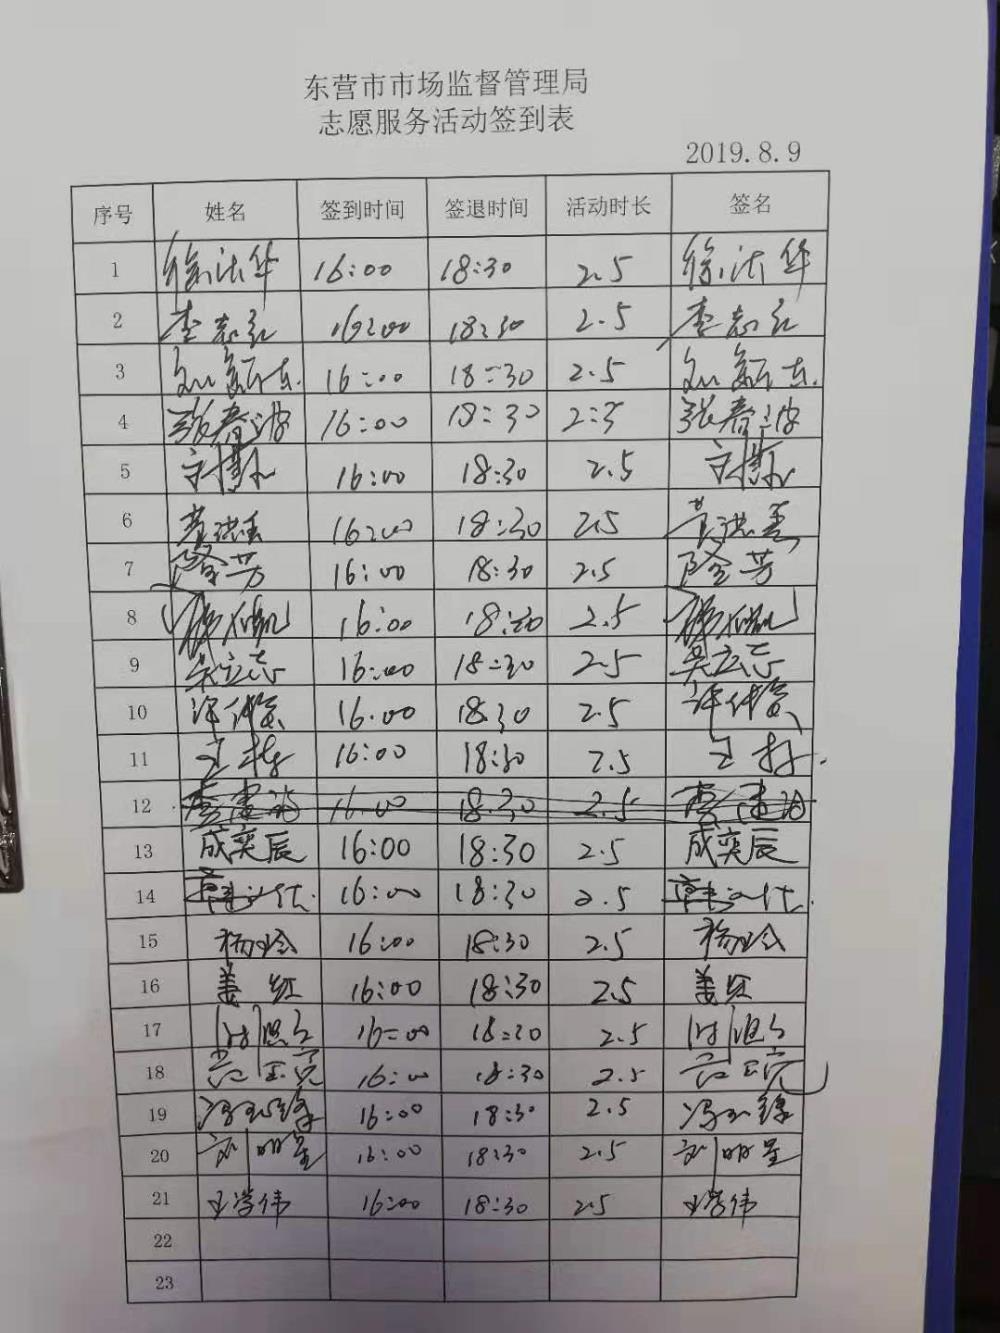 东营市市场监督管理局
志愿服务活动签到表
2019.8.9
序号 姓名 签到时间 签退时间 活动时长 签名
1 徐法华 16:00 18:30 2.5 徐法华
2 李志红 16:00 18:30 2.5 李志红
3 16:00 18:30 2.5
4 张春波 16:00 18:30 2:5 张春波
5 16:00 18:30 2.5
6 16:00 18:30 2.5
7 隆芳 16:00 18:30 2.5 隆芳
8 16:00 18:30 2.5
9 吴立志 16:00 18:30 2.5 吴立志
10 16.00 18.30 2.5
11 16:00 18:30 2.5
12 16:00 18:30 2.5
13 成奕辰 16:00 18:30 2.5 成奕辰
14 16:00 18:30 2.5
15 杨玲 16:00 18:30 2.5 杨玲
16 姜红 16:00 18:30 2.5 姜红
17 16:00 18:30 2.5
18 16:00 18:30 2.5
19 16:00 18:30 2.5
20 刘明星 16:00 18:30 2.5 刘明星
21 王学伟 16:00 18:30 2.5 王学伟
22
23